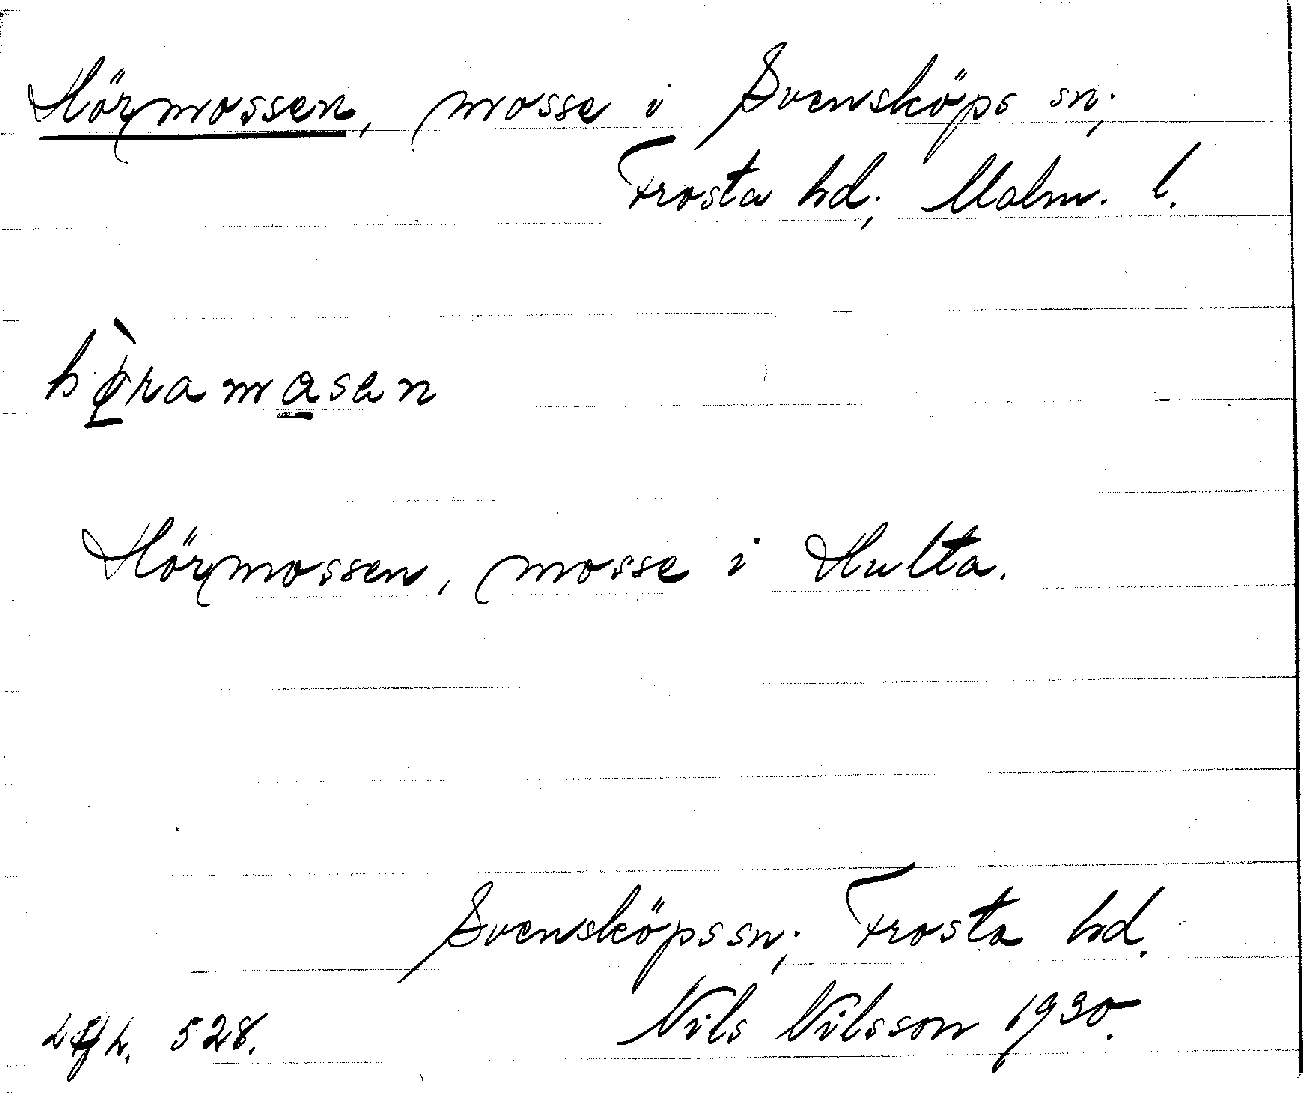 Hörmossen, mosse i Svensköps sn;
Frosta hd; Malm. l.
hø̀ramasen
Hörmossen, mosse i Hulta.
Svensköps sn; Frosta hd.
Nils Nilsson 1930.
528.